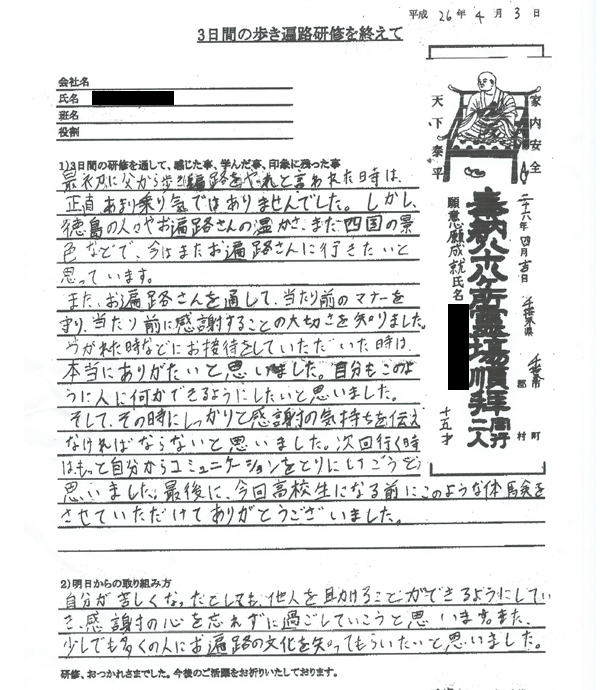 平成 26年 4月 3日
3日間の歩き遍路研修を終えて
会社名
氏名
班名
役割
1)3日間の研修を通して、感じた事、学んだ事、印象に残った事
最初に父から歩き遍路をやれと言われた時は、
正直あまり乗り気ではありませんでした。しかし、
徳島の人々やお遍路さんの温かさ、また四国の景
色などで、今はまたお遍路さんに行きたいと
思っています。
また、お遍路さんを通して、当たり前のマナーを
守り、当たり前に感謝することの大切さを知りました。
つかれた時などにお接待をしていただいた時は、
本当にありがたいと思いました。自分もこのよ
うに人に何かできるようにしたいと思いました。
そして、その時にしっかりと感謝の気持ちを伝え
なければならないと思いました。次回行く時
はもっと自分からコミュニケーションをとりにいこうと
思いました。最後に、今回高校生になる前にこのような体験を
させていただけてありがとうございました。
家内安全
天下泰平
二十六年四月吉日
千葉県
千葉市
郡
町
村
奉納八十八ヶ所霊場順拝
同行二人
願意
心願成就
氏名
十五才
2)明日からの取り組み方
自分が苦しくなったとしても、他人を助けることができるようにしてい
き、感謝の心を忘れずに過ごしていこうと思います。また、
少しでも多くの人にお遍路の文化を知ってもらいたいと思いました。
研修、おつかれさまでした。今後のご活躍をお祈りいたしております。